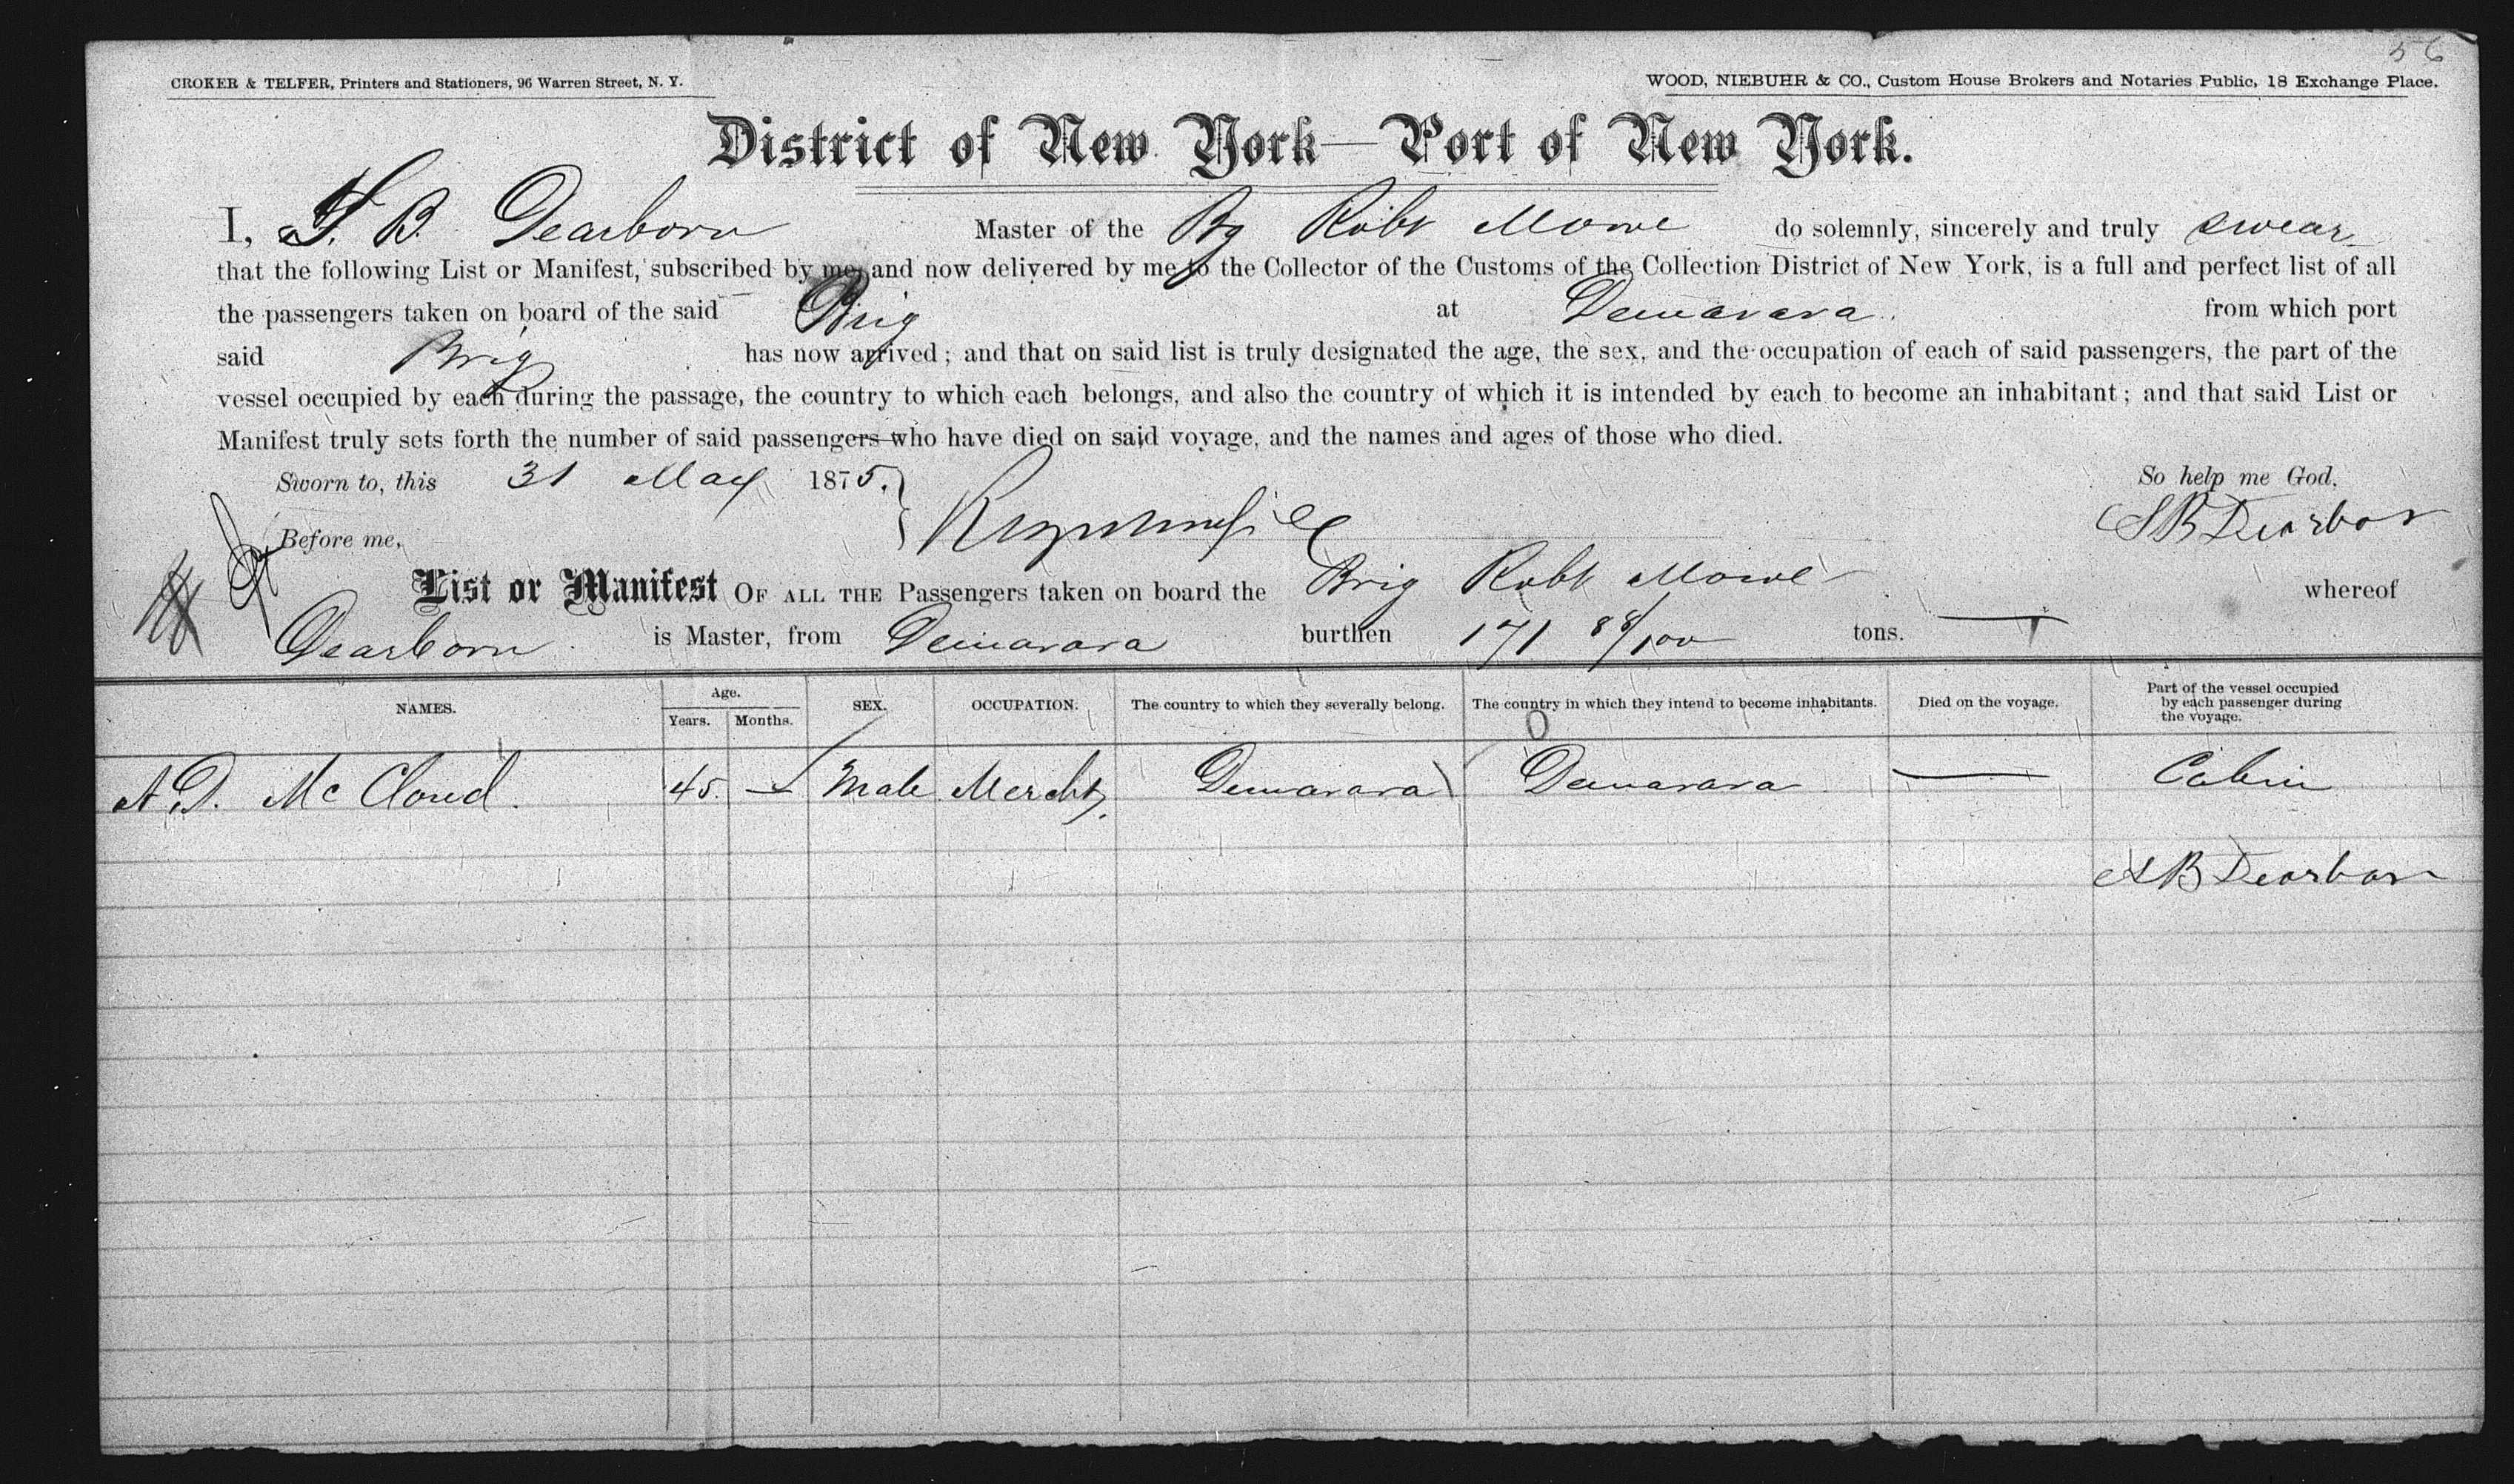 56
CROKER & TELFER, Printers and Stationers, 96 Warren Street, N. Y.
WOOD, NIEBUHR & CO., Custom House Brokers and Notaries Public, 18 Exchange Place.
District of New York—Port of New York.
I, S. B. Dearborn Master of the Bg Robt Mowe do solemnly, sincerely and truly swear
that the following List or Manifest, subscribed by me, and now delivered by me to the Collector of the Customs of the Collection District of New York, is a full and perfect list of all
the passengers taken on board of the said Brig at Demarara. from which port
said Brig has now arrived; and that on said list is truly designated the age, the sex, and the occupation of each of said passengers, the part of the
vessel occupied by each during the passage, the country to which each belongs, and also the country of which it is intended by each to become an inhabitant; and that said List or
Manifest truly sets forth the number of said passengers who have died on said voyage, and the names and ages of those who died.
Sworn to, this 31 May 1875. So help me God.
Before me, SB Dearborn
List or Manifest OF ALL THE Passengers taken on board the Brig Robt Mowe whereof
Dearborn is Master, from Demarara burthen 171 88/100 tons.
NAMES. Age. Years. Months. SEX. OCCUPATION. The country to which they severally belong. The country in which they intend to become inhabitants. Died on the voyage. Part of the vessel occupied by each passenger during the voyage.
0
A D. Mc Cloud. 45. — Male Mercht. Demarara Demarara — Cabin
SB Dearborn